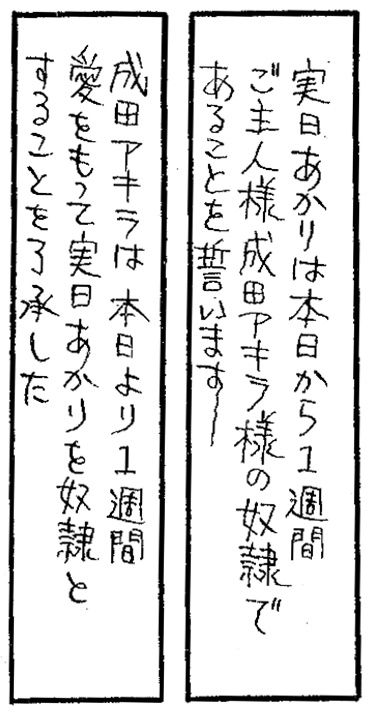 実日あかりは本日から1週間
ご主人様成田アキラ様の奴隷で
あることを誓います―
成田アキラは本日より1週間
愛をもって実日あかりを奴隷と
することを了承した